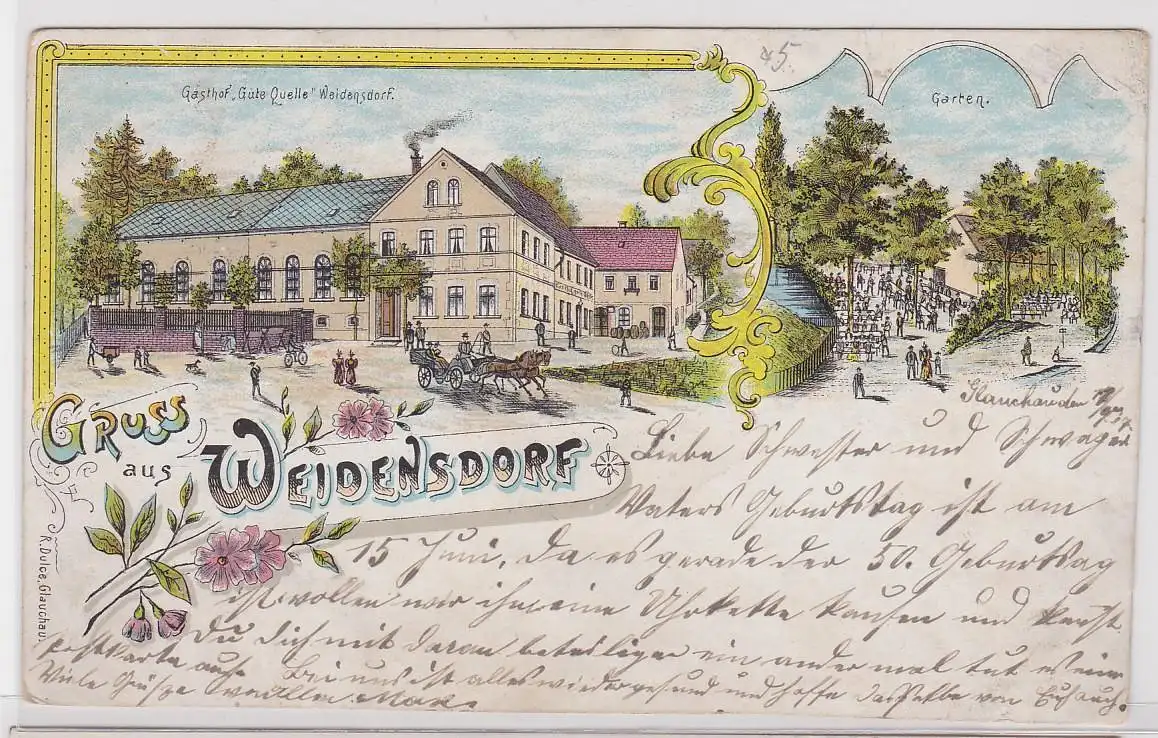 Gasthof „Gute Quelle“ Weidensdorf.
Garten.
45.
GRUSS
aus
WEIDENSDORF
R. Dulce, Glauchau.
Glauchau den
Liebe Schwester und Schwager
Vaters Geburtstag ist am
15 Juni, da es gerade der 50. Geburtstag
ist wollen wir ihm eine Uhrkette kaufen und kannst
Du Dich mit daran beteiligen ein ander mal tut es eine
Postkarte auch. Bei uns ist alles wieder gesund und hoffe dasselbe von Euch auch.
Viele Grüße von Allen Max.